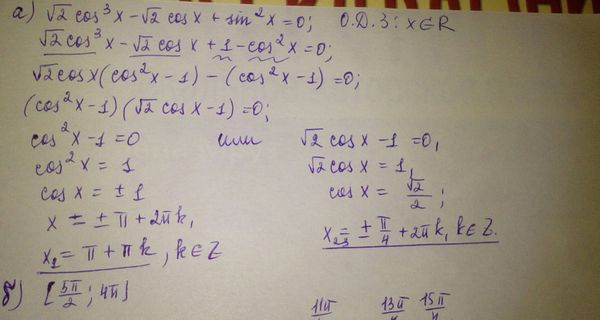 а) √2 cos³x - √2 cosx + sin²x = 0; О.Д.З: x∈R
√2 cos³x - √2 cosx + 1 - cos²x = 0;
√2 cosx (cos²x - 1) - (cos²x - 1) = 0;
(cos²x - 1)(√2 cosx - 1) = 0;
cos²x - 1 = 0 или √2 cosx - 1 = 0,
cos²x = 1 √2 cosx = 1,
cosx = ±1 cosx = √2/2;
x = ±π + 2πk,
x₁ = π + πk, k∈Z x₂,₃ = ±π/4 + 2πk, k∈Z.
б) [5π/2; 4π]
11π 13π 15π